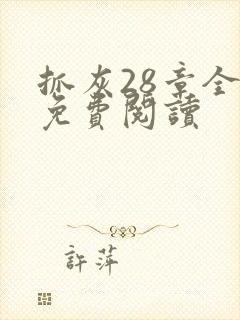 抓灰28章全
免費閱讀
許萍